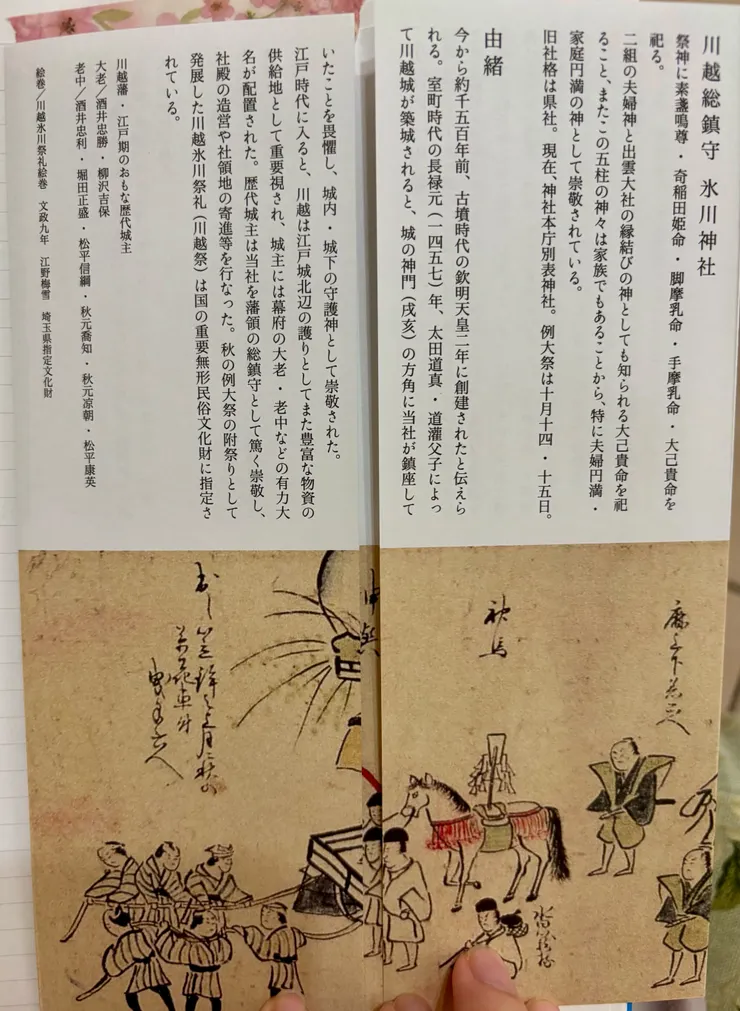 川越総鎮守 氷川神社
祭神に素盞鳴尊・奇稲田姫命・脚摩乳命・手摩乳命・大己貴命を
祀る。
二組の夫婦神と出雲大社の縁結びの神としても知られる大己貴命を祀
ること、またこの五柱の神々は家族でもあることから、特に夫婦円満・
家庭円満の神として崇敬されている。
旧社格は県社。現在、神社本庁別表神社。例大祭は十月十四・十五日。
由緒
今から約千五百年前、古墳時代の欽明天皇二年に創建されたと伝えら
れる。室町時代の長禄元（一四五七）年、太田道真・道灌父子によっ
て川越城が築城されると、城の神門（戌亥）の方角に当社が鎮座して
いたことを畏懼し、城内・城下の守護神として崇敬された。
江戸時代に入ると、川越は江戸城北辺の護りとしてまた豊富な物資の
供給地として重要視され、城主には幕府の大老・老中などの有力大
名が配置された。歴代城主は当社を藩領の総鎮守として篤く崇敬し、
社殿の造営や社領地の寄進等を行なった。秋の例大祭の附祭りとして
発展した川越氷川祭礼（川越祭）は国の重要無形民俗文化財に指定さ
れている。
川越藩・江戸期のおもな歴代城主
大老／酒井忠勝・柳沢吉保
老中／酒井忠利・堀田正盛・松平信綱・秋元喬知・秋元凉朝・松平康英
絵巻／川越氷川祭礼絵巻 文政九年 江野梅雪 埼玉県指定文化財
神馬